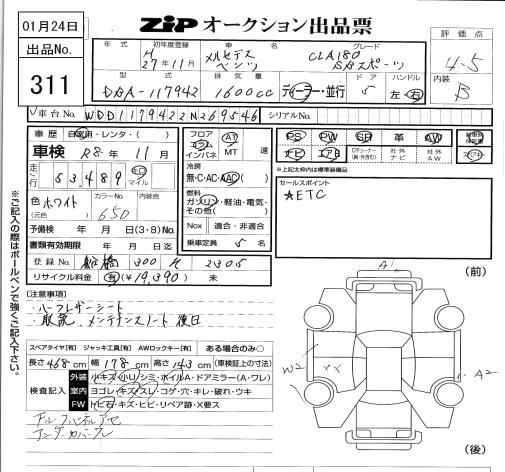 01月24日
ZIP オークション出品票
出品No.
311
年式
初年度登録
H 27年11月
車名
メルセデス ベンツ
グレード
CLA180 SBスポーツ
評価点
4-5
型式
DBA-117942
排気量
1600cc
ディーラー・並行
ドア
5
ハンドル
左・右
内装
B
車台No.
WDD1179422N269546
シリアルNo.
車歴 自家用・レンタ・( )
車検 R8年 11月
走行 53,489 キロ マイル
色 ホワイト
(元色)
カラーNo.
650
内装色
予備検 年 月 日(3・8)No.
書類有効期限 年 月 日迄
フロア エラム インパネ
AT
MT 速
冷房
無・C・AC・AAC( )
燃料
ガソリン・軽油・電気・その他( )
Nox 適合・非適合
乗車定員 5 名
PS PW SR 革 AW
ナビ エアB
社外ナビ
社外AW
※上記太枠内は標準装備品
セールスポイント
★ETC
登録No. 船橋 300 H 2305
リサイクル料金 有(¥19,390) 未
[注意事項]
・ハーフレザーシート
・取説、メンテナンスノート後日
スペアタイヤ[有] ジャッキ工具[有] AWロックキー[有] ある場合のみ○
長さ 468 cm 幅 178 cm 高さ 143 cm (車検証上の寸法)
検査記入
外装 小キズ・小U・シミ・ホイルA・ドアミラー(A・ワレ)
室内 ヨゴレ・キズ・スレ・コゲ・穴・キレ・破れ・ウキ
FW トビ石・キズ・ヒビ・リペア跡・X要ス
アンダーカバースレ
※ご記入の際はボールペンで強くご記入下さい。
(前)
A1
W2
A2
(後)